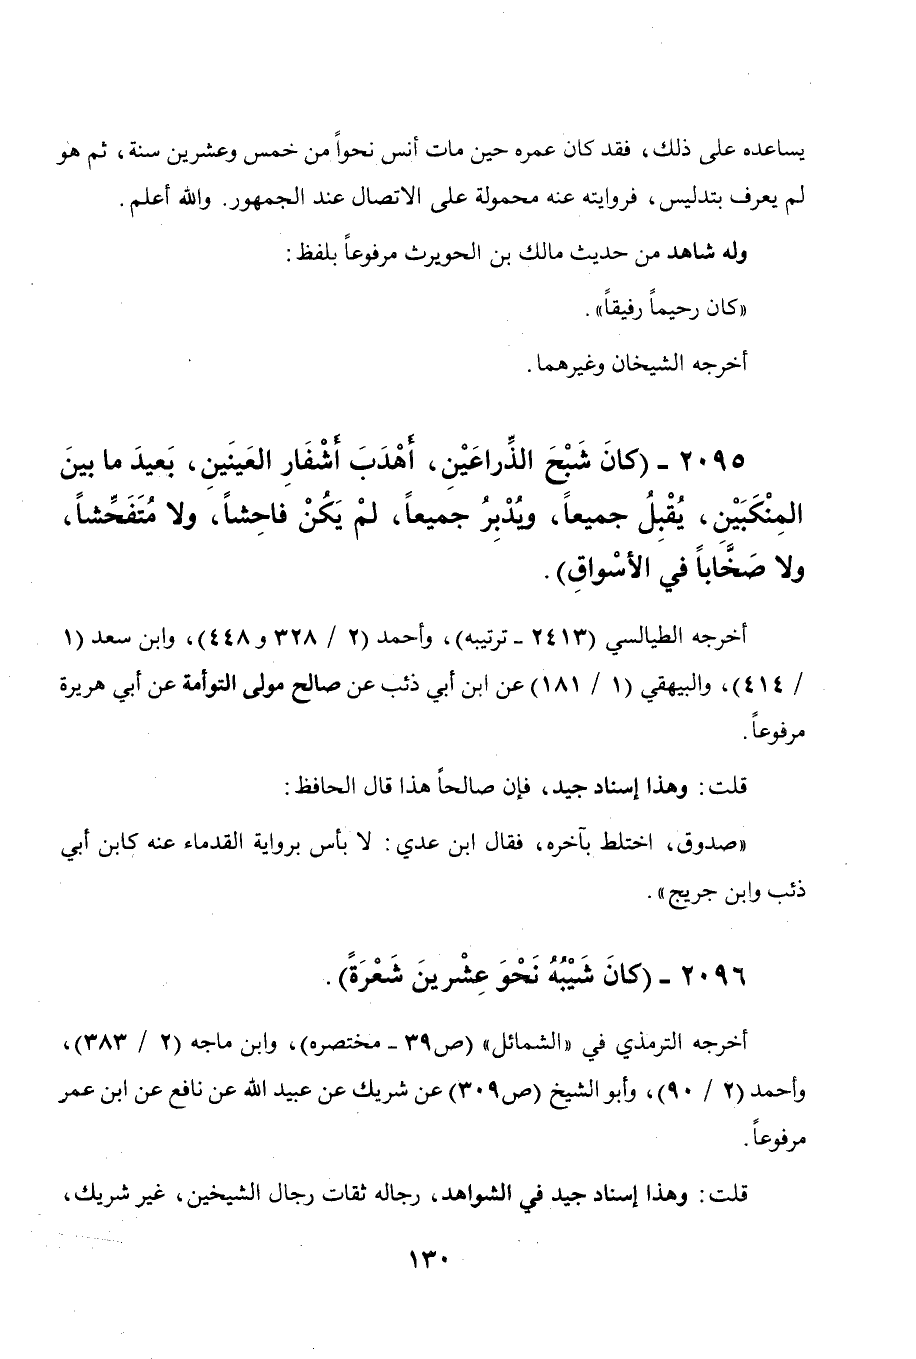 يساعده على ذلك، فقد كان عمره حين مات أنس نحواً من خمس وعشرين سنة، ثم هو
لم يعرف بتدليس، فروايته عنه محمولة على الاتصال عند الجمهور. والله أعلم.
وله شاهد من حديث مالك بن الحويرث مرفوعاً بلفظ:
«كان رحيماً رفيقاً».
أخرجه الشيخان وغيرهما.
٢٠٩٥ ـ (كانَ شَبْحَ الذِّراعَيْنِ، أَهْدَبَ أَشْفَارِ العَينَينِ، بَعيدَ ما بينَ
المِنْكَبَيْنِ، يُقْبِلُ جميعاً، ويُدْبِرُ جميعاً، لمْ يَكُنْ فاحِشاً، ولا مُتَفَحِّشاً،
ولا صَخَّاباً في الأسْواقِ).
أخرجه الطيالسي (٢٤١٣ ـ ترتيبه)، وأحمد (٢ / ٣٢٨ و ٤٤٨)، وابن سعد (١
/ ٤١٤)، والبيهقي (١ / ١٨١) عن ابن أبي ذئب عن صالح مولى التوأمة عن أبي هريرة
مرفوعاً.
قلت: وهذا إسناد جيد، فإن صالحاً هذا قال الحافظ:
«صدوق، اختلط بآخره، فقال ابن عدي: لا بأس برواية القدماء عنه كابن أبي
ذئب وابن جريج».
٢٠٩٦ ـ (كانَ شَيْبُهُ نَحْوَ عِشْرينَ شَعْرَةً).
أخرجه الترمذي في «الشمائل» (ص٣٩ ـ مختصره)، وابن ماجه (٢ / ٣٨٣)،
وأحمد (٢ / ٩٠)، وأبو الشيخ (ص٣٠٩) عن شريك عن عبيد الله عن نافع عن ابن عمر
مرفوعاً.
قلت: وهذا إسناد جيد في الشواهد، رجاله ثقات رجال الشيخين، غير شريك،
١٣٠